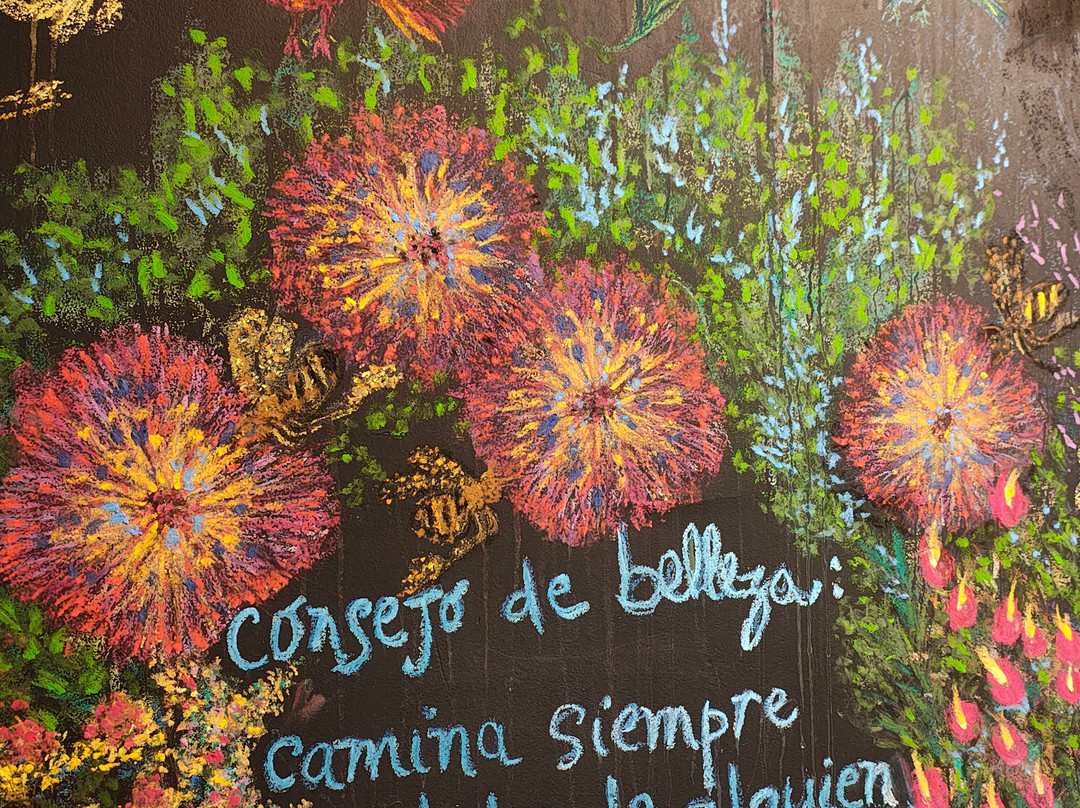 consejo de belleza:
camina siempre
de alguien